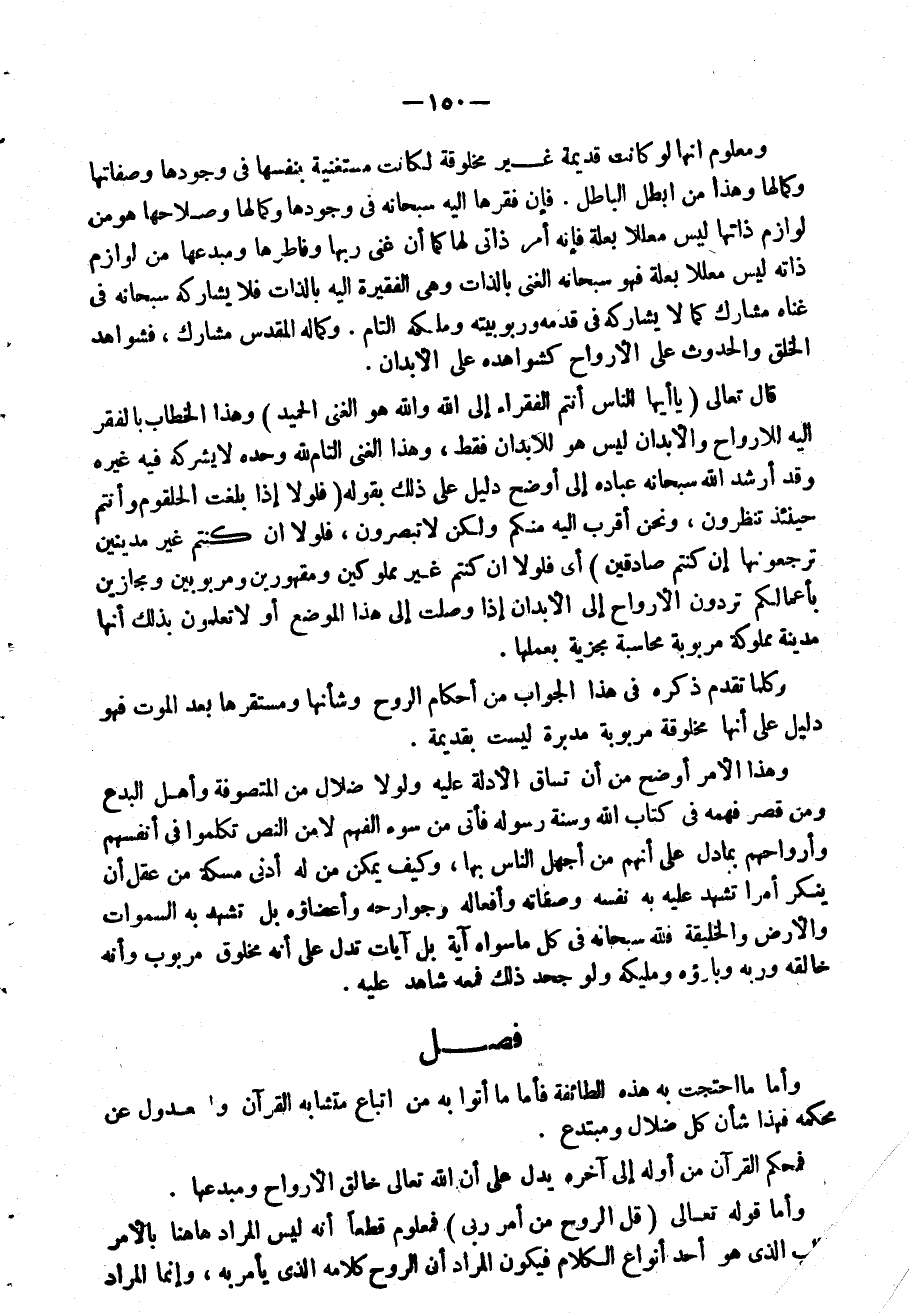 —١٥٠—
ومعلوم انها لو كانت قديمة غـــير مخلوقة لكانت مستغنية بنفسها فى وجودها وصفاتها
وكمالها وهذا من ابطل الباطل . فإن فقرها اليه سبحانه فى وجودها وكمالها وصلاحها هو من
لوازم ذاتها ليس معللا بعلة فإنه أمر ذاتى لها كما أن غنى ربها وفاطرها ومبدعها من لوازم
ذاته ليس معللا بعلة فهو سبحانه الغنى بالذات وهى الفقيرة اليه بالذات فلا يشاركه سبحانه فى
غناه مشارك كما لا يشاركه فى قدمه وربوبيته وملكه التام . وكماله المقدس مشارك ، فشواهد
الخلق والحدوث على الأرواح كشواهده على الأبدان .
قال تعالى ( ياأيها الناس أنتم الفقراء إلى الله والله هو الغنى الحميد ) وهذا الخطاب بالفقر
اليه للارواح والأبدان ليس هو للأبدان فقط ، وهذا الغنى التام لله وحده لايشركه فيه غيره
وقد أرشد الله سبحانه عباده إلى أوضح دليل على ذلك بقوله ( فلولا إذا بلغت الحلقوم وأنتم
حينئذ تنظرون ، ونحن أقرب اليه منكم ولكن لاتبصرون ، فلولا ان كنتم غير مدينين
ترجعونها إن كنتم صادقين ) أى فلولا ان كنتم غـير مملوكين ومقهورين ومربوبين ومجازين
بأعمالكم تردون الأرواح إلى الأبدان إذا وصلت إلى هذا الموضع أو لاتعلمون بذلك أنها
مدينة مملوكة مربوبة محاسبة مجزية بعملها .
وكلما تقدم ذكره فى هذا الجواب من أحكام الروح وشأنها ومستقرها بعد الموت فهو
دليل على أنها مخلوقة مربوبة مدبرة ليست بقديمة .
وهذا الأمر أوضح من أن تساق الأدلة عليه ولولا ضلال من المتصوفة وأهل البدع
ومن قصر فهمه فى كتاب الله وسنة رسوله فأتى من سوء الفهم لامن النص تكلموا فى أنفسهم
وأرواحهم بمادل على أنهم من أجهل الناس بها ، وكيف يمكن من له أدنى مسكة من عقل أن
ينكر أمرا تشهد عليه به نفسه وصفاته وأفعاله وجوارحه وأعضاؤه بل تشهد به السموات
والأرض والخليقة فلله سبحانه فى كل ماسواه آية بل آيات تدل على أنه مخلوق مربوب وأنه
خالقه وربه وبارؤه ومليكه ولو جحد ذلك فمعه شاهد عليه .
فصـــل
وأما مااحتجت به هذه الطائفة فأما ما أتوا به من اتباع متشابه القرآن عـدول عن
محكمه فهذا شأن كل ضلال ومبتدع .
فمحكم القرآن من أوله إلى آخره يدل على أن الله تعالى خالق الأرواح ومبدعها .
وأما قوله تعـالى ( قل الروح من أمر ربى ) فمعلوم قطعاً أنه ليس المراد هاهنا بالأمر
الذى هو أحد أنواع الكلام فيكون المراد أن الروح كلامه الذى يأمر به ، وإنما المراد